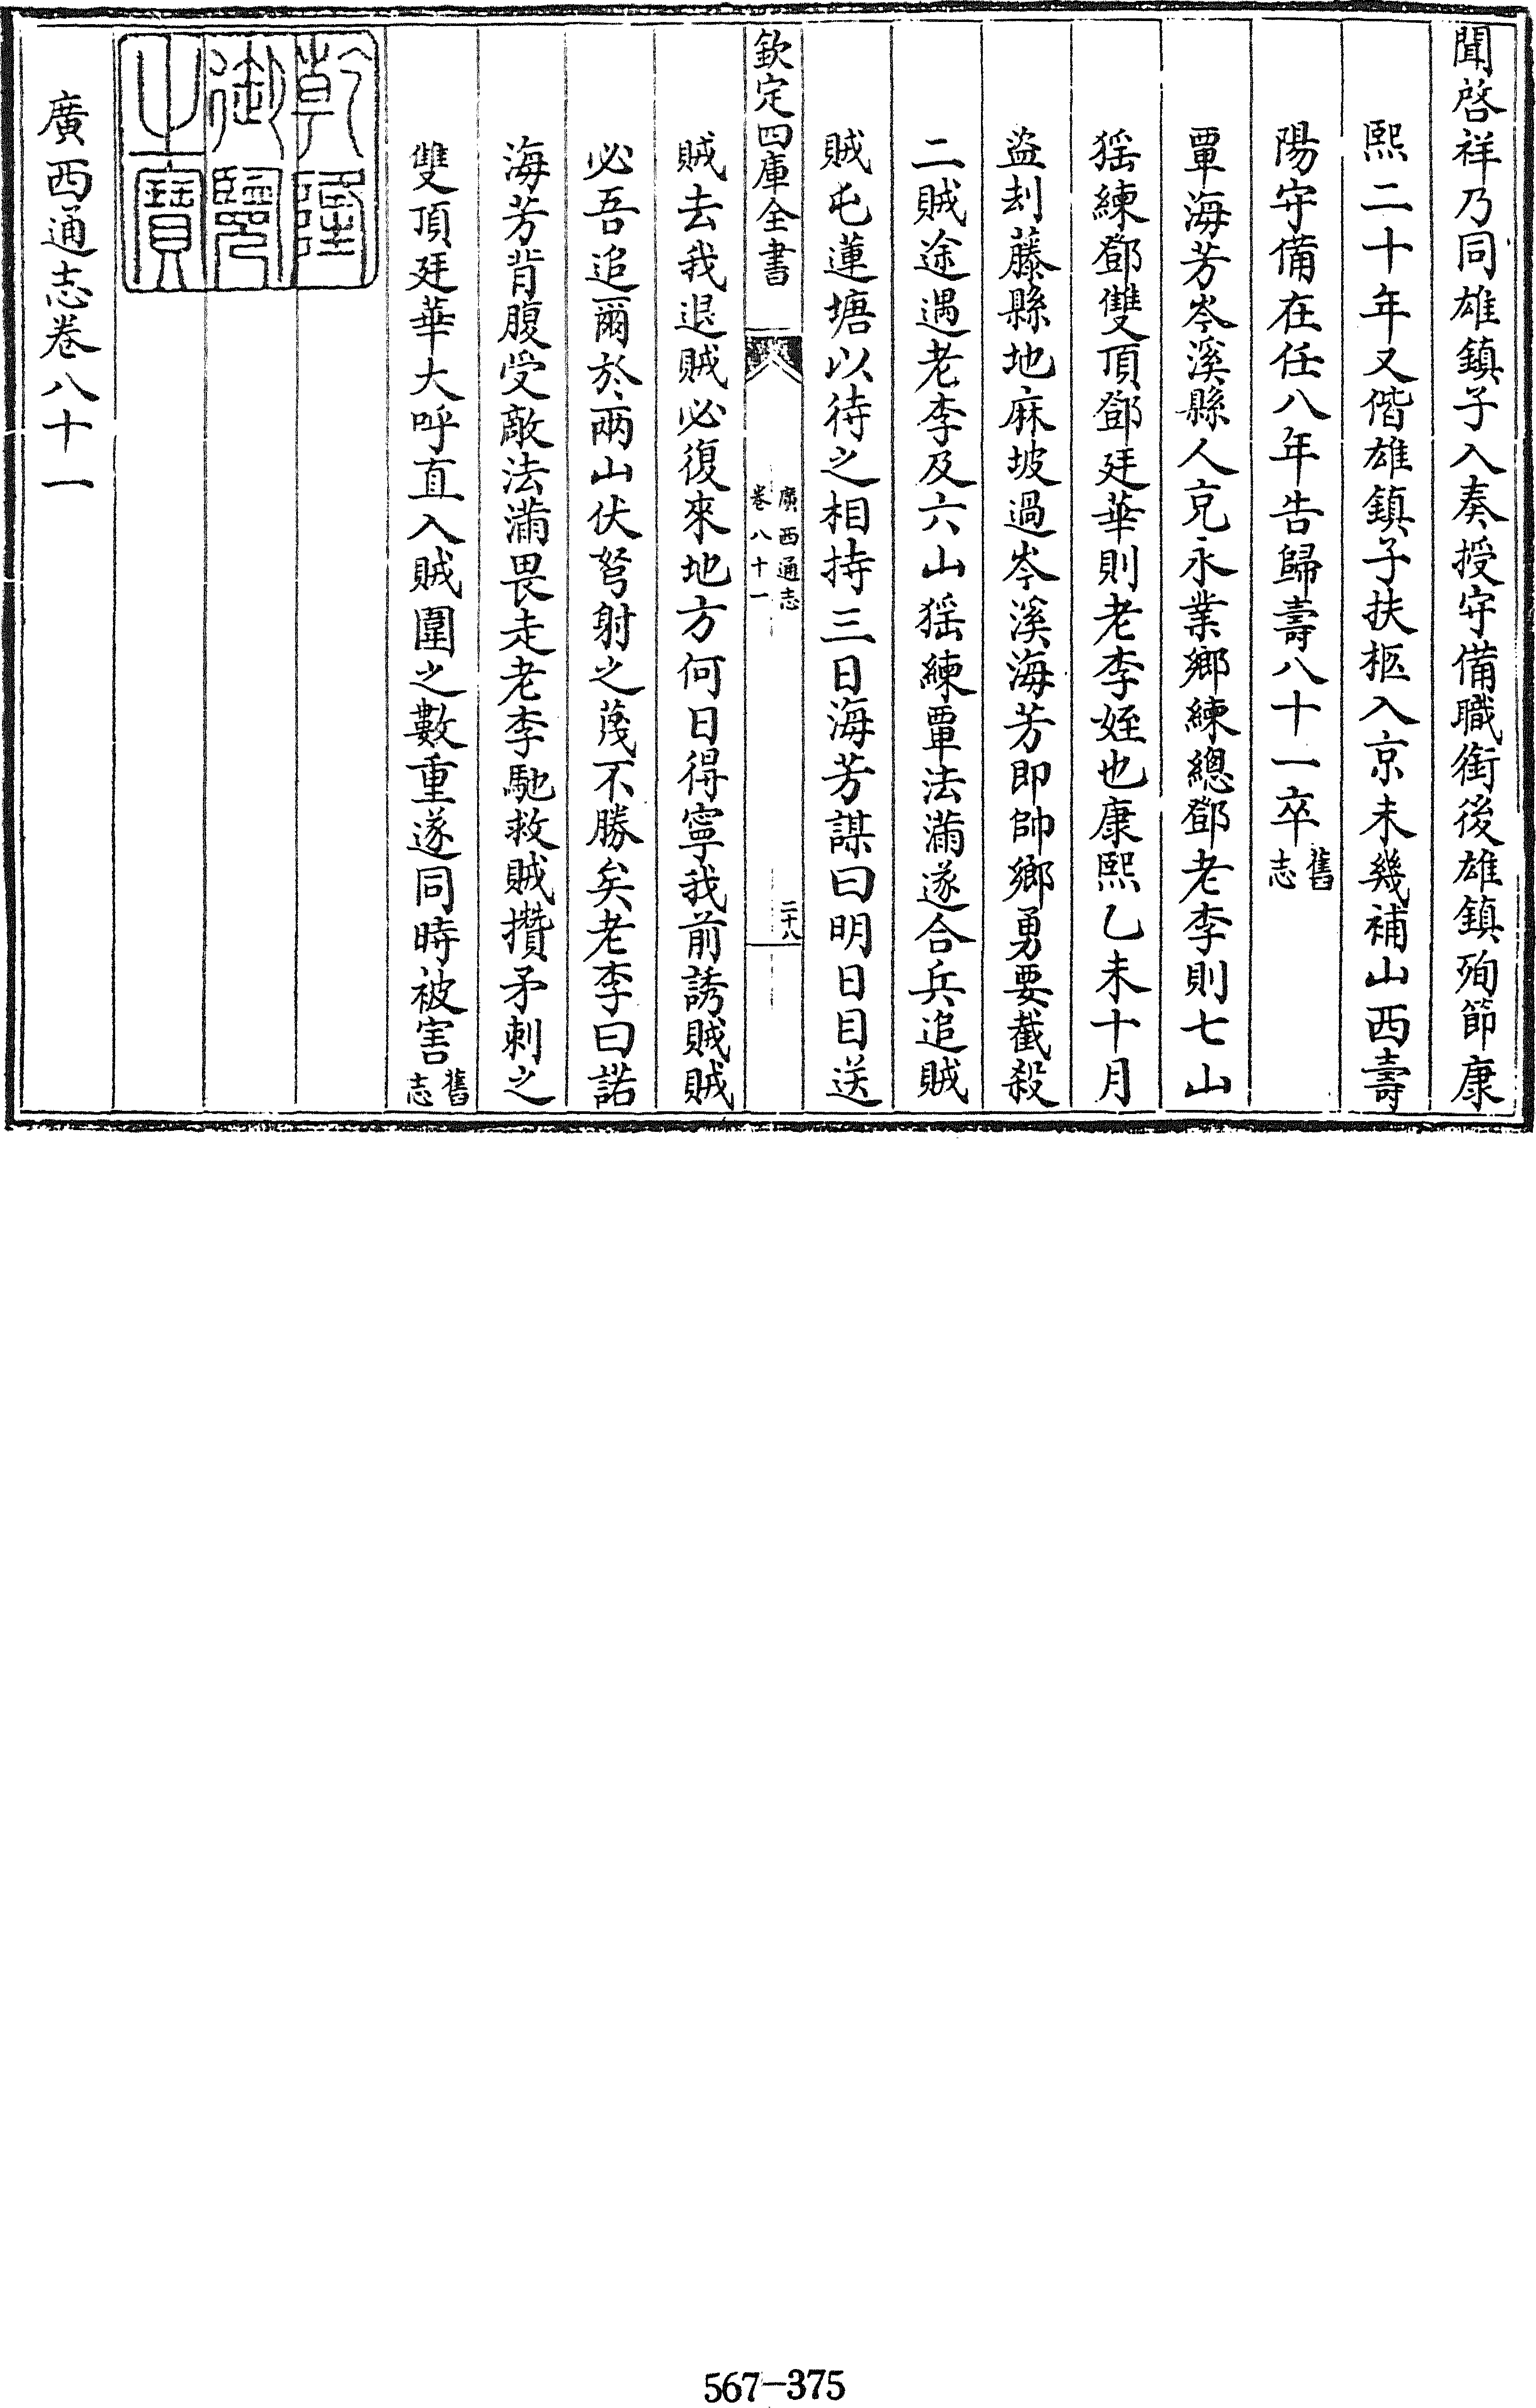 聞啓祥乃同雄鎮子入奏授守備職銜後雄鎮殉節康
熙二十年又偕雄鎮子扶柩入京未幾補山西壽
陽守備在任八年告歸壽八十一卒舊志
覃海芳岑溪縣人充永業鄉練總鄧老李則七山
猺練鄧雙頂鄧廷華則老李姪也康熙乙未十月
盜刦藤縣地麻坡過岑溪海芳即帥鄉勇要截殺
二賊途遇老李及六山猺練覃法滿遂合兵追賊
賊屯蓮塘以待之相持三日海芳謀曰明日目送
欽定四庫全書
廣西通志
卷八十一
二十八
賊去我退賊必復來地方何日得寧我前誘賊賊
必吾追爾於兩山伏弩射之蔑不勝矣老李曰諾
海芳背腹受敵法滿畏走老李馳救賊攢矛刺之
雙頂廷華大呼直入賊圍之數重遂同時被害舊志
乾隆御覽之寶
廣西通志卷八十一
567-375